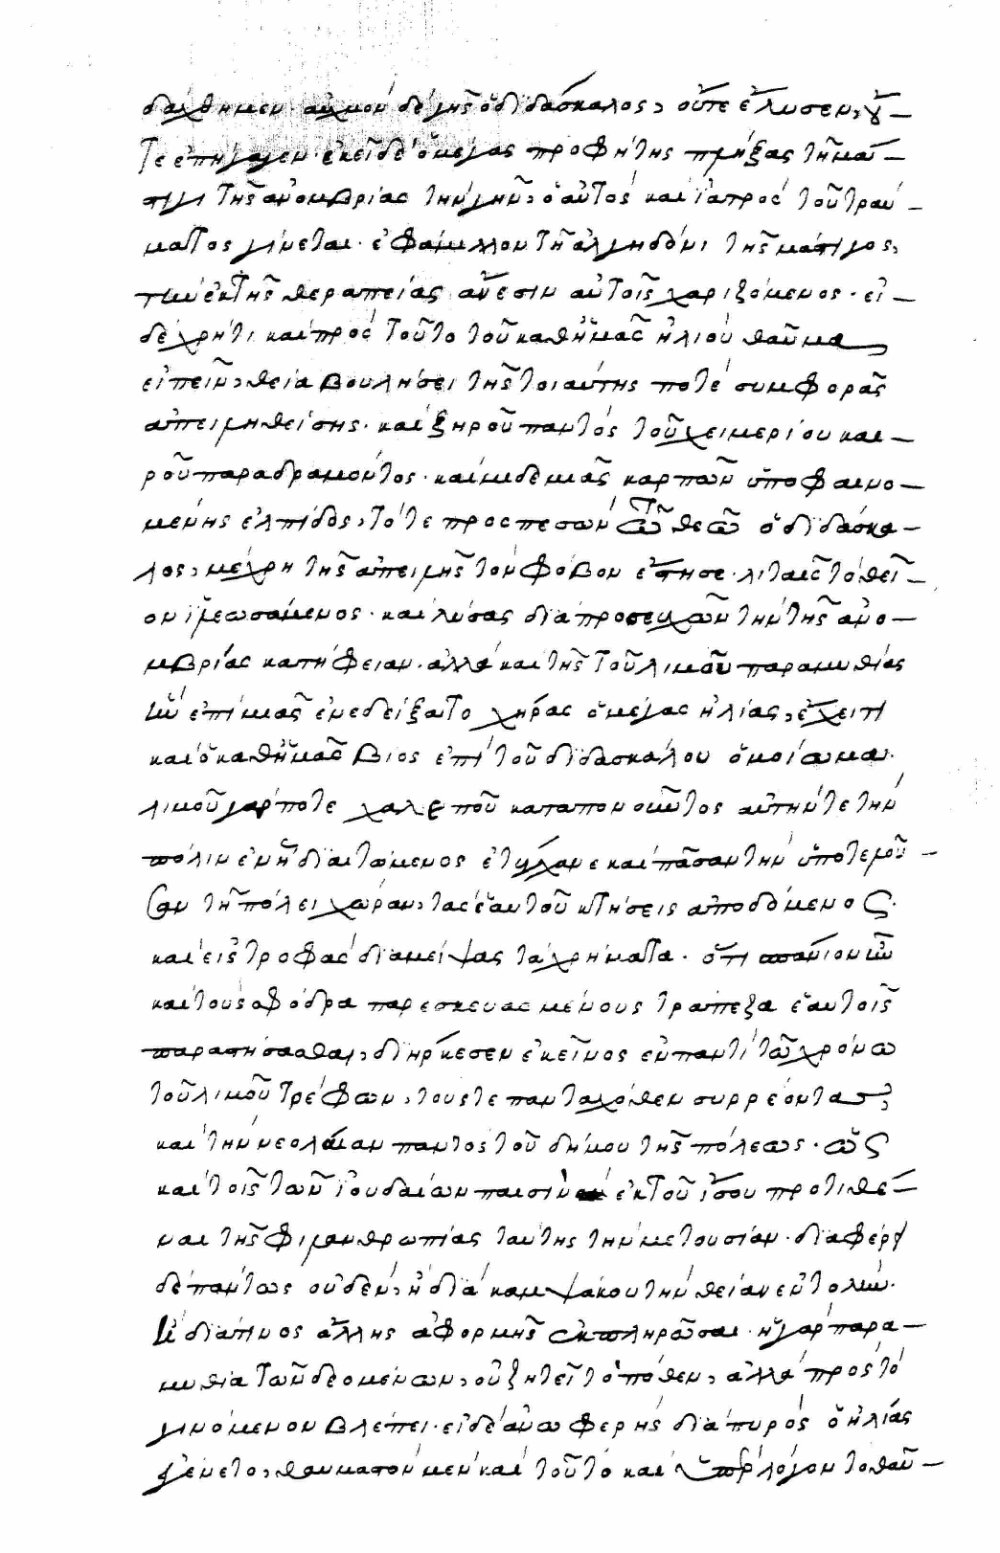 δαχθημεν· αὐχμὸν δὲ γῆς ὁ διδάσκαλος, οὔτε ἔλυσεν, οὔ-
τε ἐπήγαγεν· ἐκεῖ δὲ ὁ μέγας προφήτης πλήξας τῇ μάσ-
τιγι τῆς ἀνομβρίας τὴν γῆν, ὁ αὐτὸς καὶ ἰατρὸς τοῦ τραύ-
ματος γίνεται· ἐφάμιλλον τῇ ἀλγηδόνι τῆς μάστιγος,
τὴν ἐκ τῆς θεραπείας ἄνεσιν αὐτοῖς χαριζόμενος· εἰ-
δὲ χρή τι καὶ πρὸς τοῦτο τοῦ καθ ἡμᾶς ἡλιοὺ θαῦμα
εἰπεῖν, θεία βουλήσει τῆς τοιαύτης ποτὲ συμφορᾶς
ἀπειληθείσης· καὶ ξηροῦ παντὸς τοῦ χειμερίου και-
ροῦ παραδραμόντος· καὶ μιδεμιᾶς καρπῶν ὑποφαινο-
μένης ἐλπίδος, τότε προσπεσὼν τῷ θεῷ ὁ διδάσκα-
λος, μέχρη τῆς ἀπειλῆς τὸν φόβον ἔστησε· λιταῖς τὸ θεῖ-
ον ἱλεωσάμενος· καὶ λύσας διὰ προσευχῶν τὴν τῆς ἀνο-
μβρίας κατήφειαν· ἀλλὰ καὶ τῆς τοῦ λιμοῦ παραμυθίας
ἣν ἐπὶ μιᾶς ἐνεδείξατο χήρας ὁ μέγας ἡλίας, ἔχει τι
καὶ ὁ καθ ἡμᾶς βίος ἐπὶ τοῦ διδασκάλου ὁμοίωμα·
λιμοῦ γάρ ποτε χαλεποῦ καταπονοῦντος αὐτήν τε τὴν
πόλιν ἐν ᾗ διαιτώμενος ἐτύγχανε καὶ πᾶσαν τὴν ὑποτελοῦ-
σαν τῇ πόλει χώραν, τὰς ἑαυτοῦ κτήσεις ἀποδόμενος·
καὶ εἰς τροφὰς διαμείψας τὰ χρήματα· ὅτι σπάνιον ἦν
καὶ τοὺς σφόδρα παρεσκευασμένους τράπεζα ἑαυτοῖς
παραστήσασθαι, διήρκεσεν ἐκεῖνος ἐν παντὶ τῷ χρόνω
τοῦ λιμοῦ τρέφων, τούς τε πανταχόθεν συρρέοντας,
καὶ τὴν νεολαίαν παντὸς τοῦ δήμου τῆς πόλεως· ὡς
καὶ τοῖς τῶν ἰουδαίων παισὶν ἐκ τοῦ ἴσου προτιθέ-
ναι τῆς φιλανθρωπίας ταύτης τὴν μετουσίαν· διαφέρει
δὲ πάντως οὐδὲν, ἢ διὰ καμψάκου τὴν θείαν ἐντολὴν·
ἢ διά τινος ἄλλης ἀφορμῆς ἐκπληρῶσαι· ἡ γὰρ παρα-
μυθία τῶν δεομένων, οὐ ζητεῖ τὸ πόθεν, ἀλλὰ πρὸς τὸ
γινόμενον βλέπει· εἰ δὲ ἀνωφερὴς διὰ πυρὸς ὁ ἡλίας
ἐγένετο, θαυμαστὸν μὲν καὶ τοῦτο καὶ ὑπὲρ λόγον τὸ θαῦ-